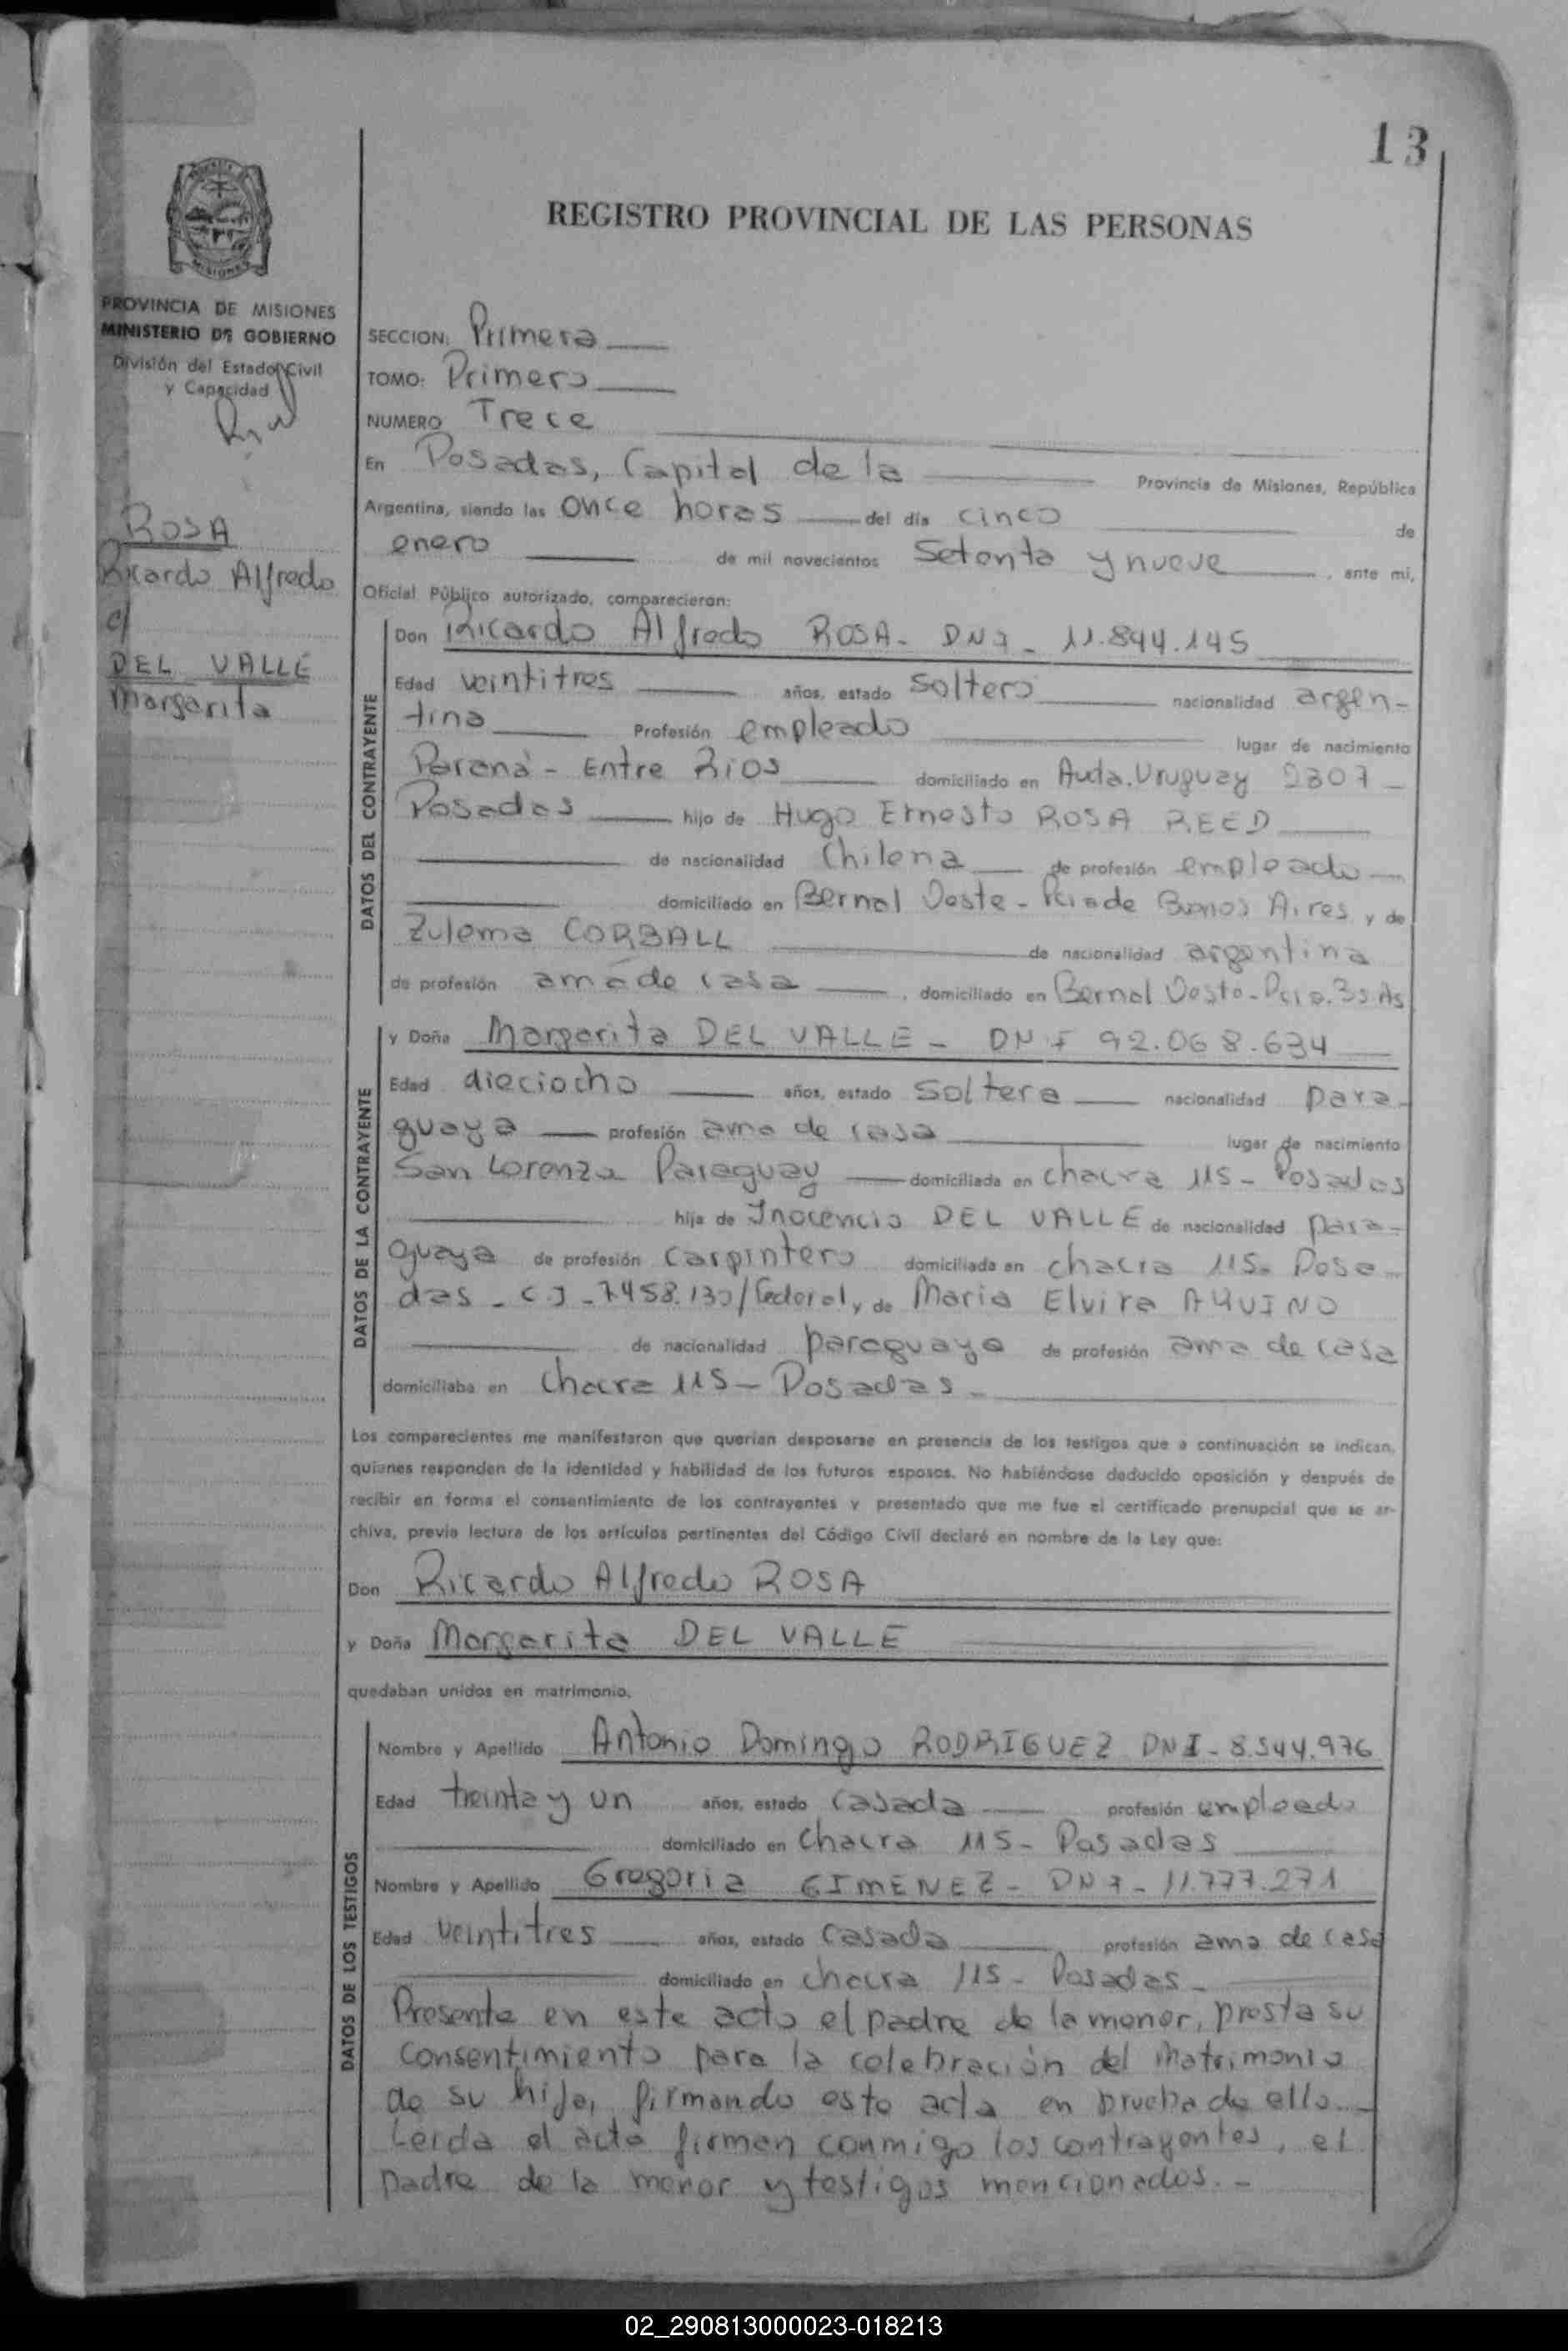 13
REGISTRO PROVINCIAL DE LAS PERSONAS
MISIONES
PROVINCIA DE MISIONES
MINISTERIO DE GOBIERNO
División del Estado Civil
y Capacidad
ROSA
Ricardo Alfredo
c/
DEL VALLE
Margarita
SECCION: Primera
TOMO: Primero
NUMERO Trece
En Posadas, Capital de la Provincia de Misiones, República
Argentina, siendo las once horas del día cinco de
enero de mil novecientos setenta y nueve, ante mí,
Oficial Público autorizado, comparecieron:
DATOS DEL CONTRAYENTE
Don Ricardo Alfredo ROSA - DNI - 11.844.145
Edad veintitres años, estado soltero nacionalidad argen-
tina Profesión empleado lugar de nacimiento
Paraná - Entre Rios domiciliado en Avda. Uruguay 2307 -
Posadas hijo de Hugo Ernesto ROSA REED
de nacionalidad Chilena de profesión empleado
domiciliado en Bernal Oeste - Pcia de Buenos Aires y de
Zulema CORBALL de nacionalidad argentina
de profesión ama de casa, domiciliado en Bernal Oeste - Pcia. Bs As
DATOS DE LA CONTRAYENTE
y Doña Margarita DEL VALLE - DNI 92.068.634
Edad dieciocho años, estado soltera nacionalidad para-
guaya profesión ama de casa lugar de nacimiento
San Lorenzo Paraguay domiciliada en chacra 115 - Posadas
hija de Inocencio DEL VALLE de nacionalidad para-
guaya de profesión carpintero domiciliada en chacra 115 - Posa-
das - CI - 7458.130/Federal y de Maria Elvira AQUINO
de nacionalidad paraguaya de profesión ama de casa
domiciliaba en Chacra 115 - Posadas -
Los comparecientes me manifestaron que querían desposarse en presencia de los testigos que a continuación se indican,
quienes responden de la identidad y habilidad de los futuros esposos. No habiéndose deducido oposición y después de
recibir en forma el consentimiento de los contrayentes y presentado que me fue el certificado prenupcial que se ar-
chiva, previa lectura de los artículos pertinentes del Código Civil declaré en nombre de la Ley que:
Don Ricardo Alfredo ROSA
y Doña Margarita DEL VALLE
quedaban unidos en matrimonio.
DATOS DE LOS TESTIGOS
Nombre y Apellido Antonio Domingo RODRIGUEZ DNI - 8.544.976
Edad treinta y un años, estado casada profesión empleado
domiciliado en Chacra 115 - Posadas
Nombre y Apellido Gregoria GIMENEZ - DNI - 11.777.271
Edad veintitres años, estado casada profesión ama de casa
domiciliado en chacra 115 - Posadas -
Presente en este acto el padre de la menor, presta su
consentimiento para la celebración del matrimonio
de su hija, firmando esta acta en prueba de ello. -
Leida el acta firman conmigo los contrayentes, el
padre de la menor y testigos mencionados. -
02_290813000023-018213